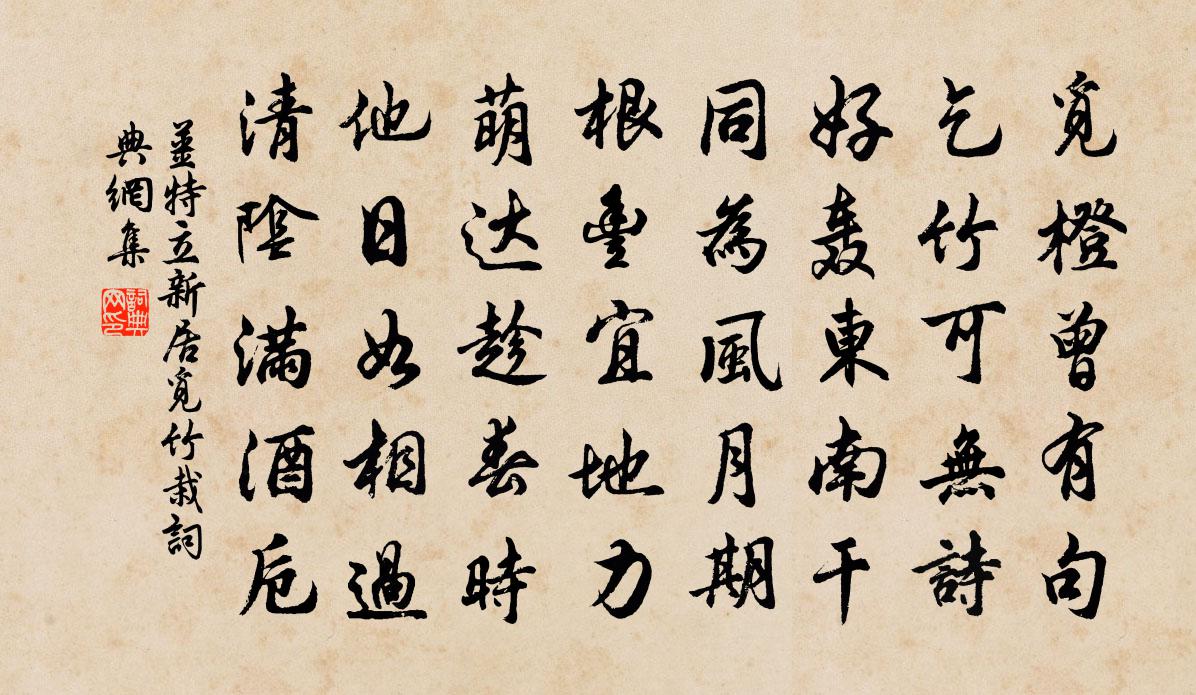 覓橙曾有句
乞竹可無詩
好轰東南干
同為風月期
根豊宜地力
萌达趁春時
他日如相過
清陰滿酒卮
姜特立新居覓竹栽詞
典網集
詞典
网印